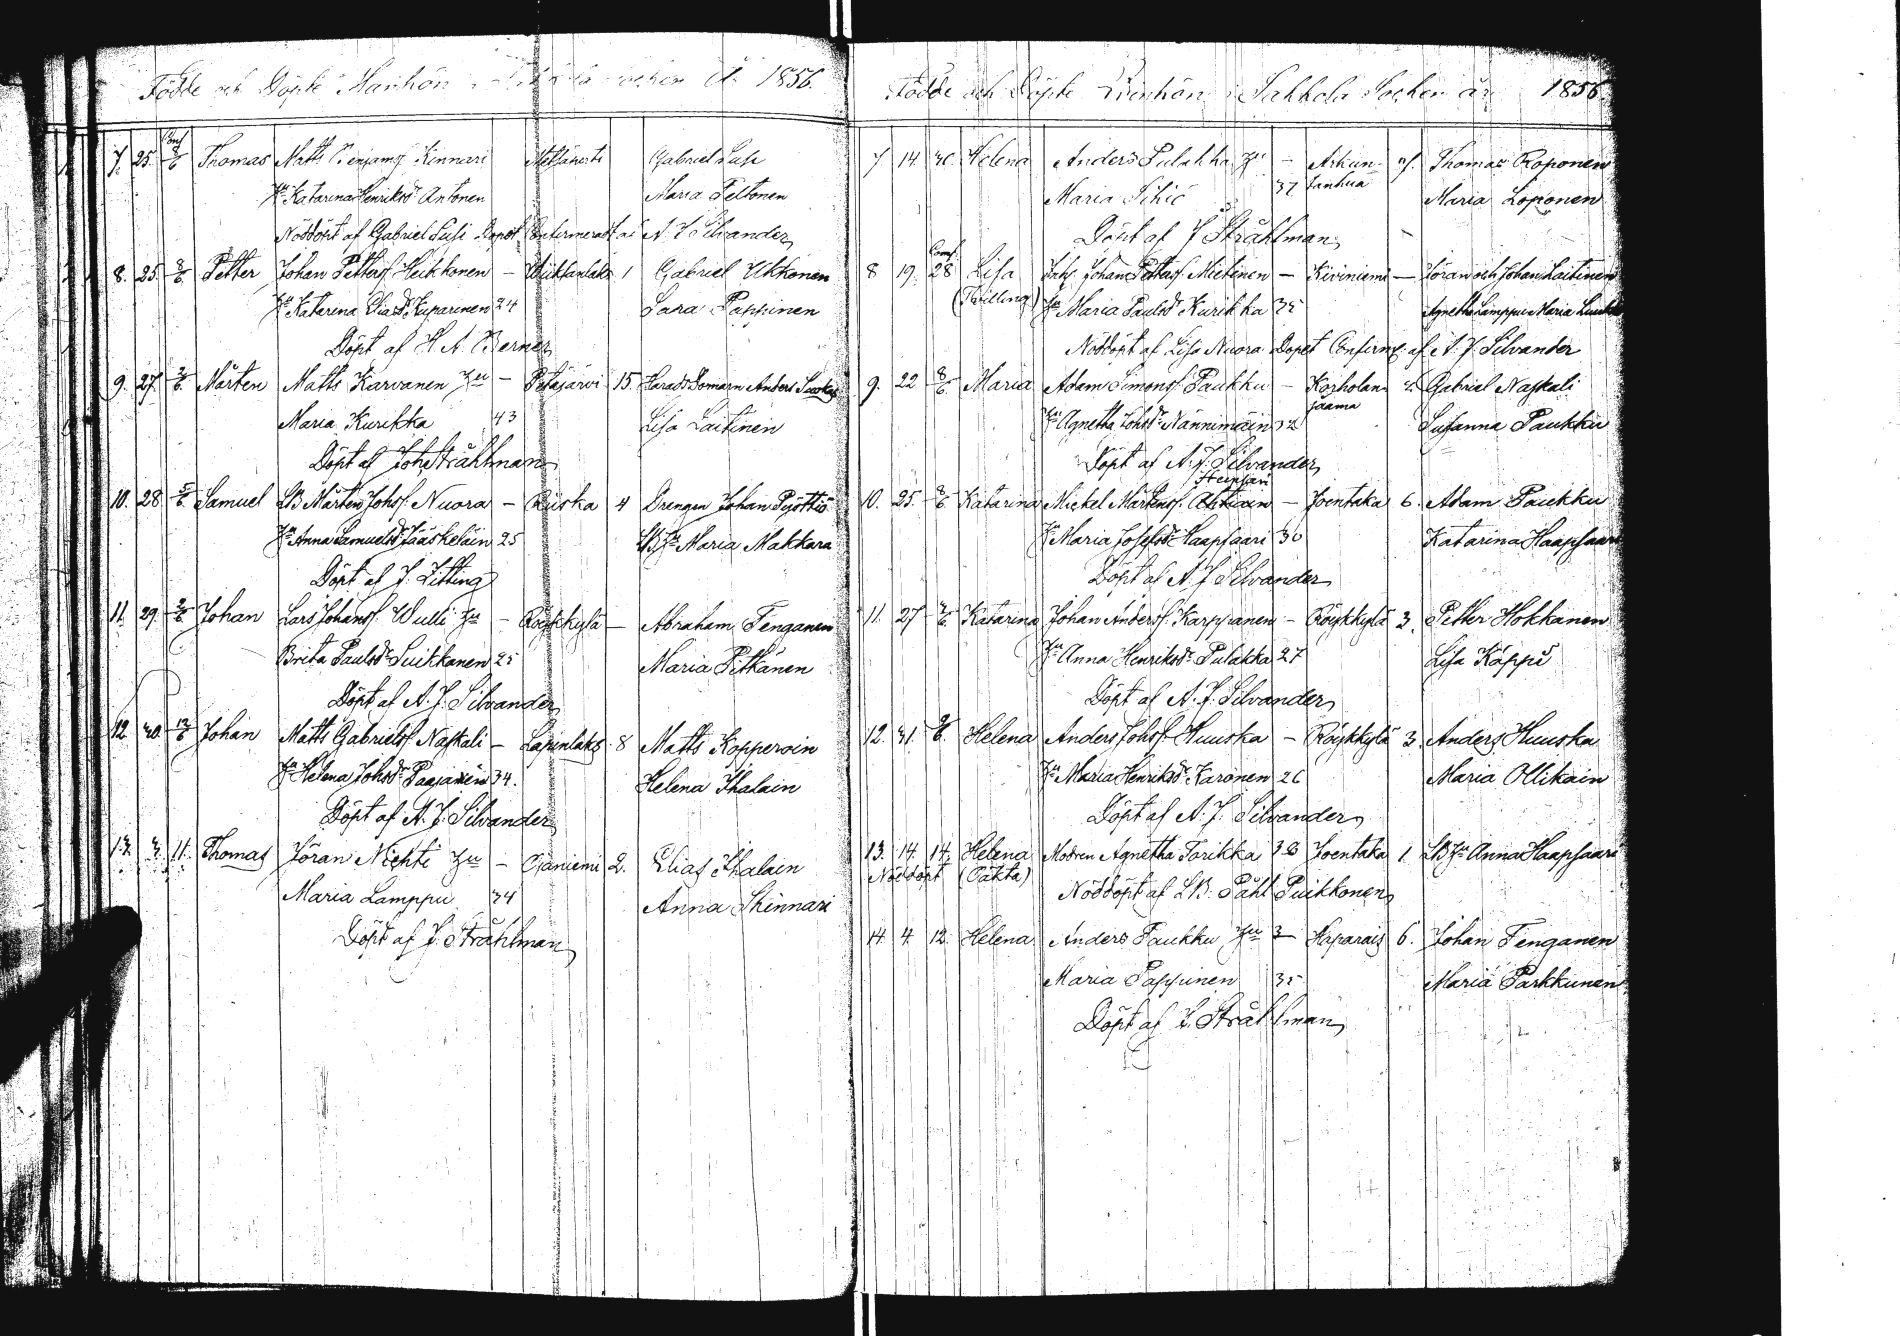 Födde och Döpte Mankön i Sakkola Socken År 1856.
7. 25. Conf. 8/6 Thomas Matts Benjamsf Kinnari Metsäpirti Gabriel Susi
Hu Katarina Henriksdr Antonen Maria Peltonen
Nöddöpt af Gabriel Susi Dopet Confirmeradt af A. J. Silvander
8. 25. 8/6 Petter Johan Pettersf. Heikkonen – Wiiksanlaks 1 Gabriel Ukkonen
Hu Katarina Eliasdr Kuparinen 24 Sara Pappinen
Döpt af H. A. Berner
9. 27. 3/6 Mårten Matts Karvanen Hu – Petäjärvi 15. Harads Domarn Anders
Maria Kurikka 43 Lisa Laitinen
Döpt af Joh Stråhlman
10. 28 5/6 Samuel LB Mårten Johsf. Nuora – Riiska 4 Drengen Johan Pyöttiö
Hu Anna Samuelsdr Jääskeläin 25 LB Hu Maria Makkara
Döpt af J. Zitting
11. 29. 2/6 Johan Lars Johansf. Wulli Hu – Röykkylä – Abraham Tenganen
Brita Paulsdr Suikkanen 25 Maria Pitkänen
Döpt af A. J. Silvander
12. 30. 13/6 Johan Matts Gabrielsf. Naskali – Lapinlaks 8 Matts Kopperoin
Hu Helena Johsdr Paajanen 34. Helena Ihalain
Döpt af A. J. Silvander
13. 3. 11. Thomas Jöran Niekti Hu – Ojaniemi 2. Elias Ihalain
Maria Lamppu 34 Anna Skinnari
Döpt af J. Stråhlman
Födde och Döpte Qvinkön i Sakkola Socken år 1856.
7 14 30 Helena Anders Pulakka Hu – Arkun- Thomas Roponen
Maria Sihvo 37 tanhua Maria Loponen
Döpt af J Stråhlman
8 19. Conf. 28 Lisa Inhs. Johan Pettersf. Mietinen – Kiviniemi – Jöran och Johan Laitinen
(Tvilling) Hu Maria Paulsdr Kurikka 35 Agnetha Lamppu Maria
Nöddöpt af Lisa Nuora Dopet Confirm. af A. J. Silvander
9. 22 8/6 Maria Adam Simonsf. Paukku – Korholan- 4. Gabriel Naskali
jaama
Hu Agnetha Johsdr Nännimäin 32 Susanna Paukku
Döpt af A. J. Silvander
10. 25. 8/6 Katarina Mickel Mårtensf. – Joentaka 6. Adam Paukku
Hu Maria Josefsdr Haapsaari 30 Katarina Haapsaari
Döpt af A. J. Silvander
11. 27 2/6 Katarina Johan Andersf. Karppanen – Röykkylä 3. Petter Hokkanen
Hu Anna Henriksdr Pulakka 27 Lisa Käppi
Döpt af A. J. Silvander
12. 31. 2/6 Helena Anders Johsf. Huuska – Röykkylä 3. Anders Huuska
Hu Maria Henriksdr Karonen 26 Maria Ollikain
Döpt af A. J. Silvander
13. 14. 14. Helena Modren Agnetha Torikka 38 Joentaka 1. LB Hu Anna Haapsaari
Nöddöpt (Oäkta)
Nöddöpt af LB. Påhl Puikkonen
14. 4. 12. Helena Anders Paukku Hu 3 – Haparais 6. Johan Tenganen
Maria Pappinen 35 Maria Parkkunen
Döpt af J. Stråhlman